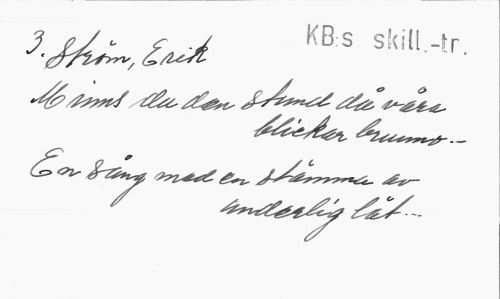 3. Ström, Erik
KB:s skill.-tr.
Minns du den stund då våra
blickar brunno--
En sång med en stämma av
underlig låt---